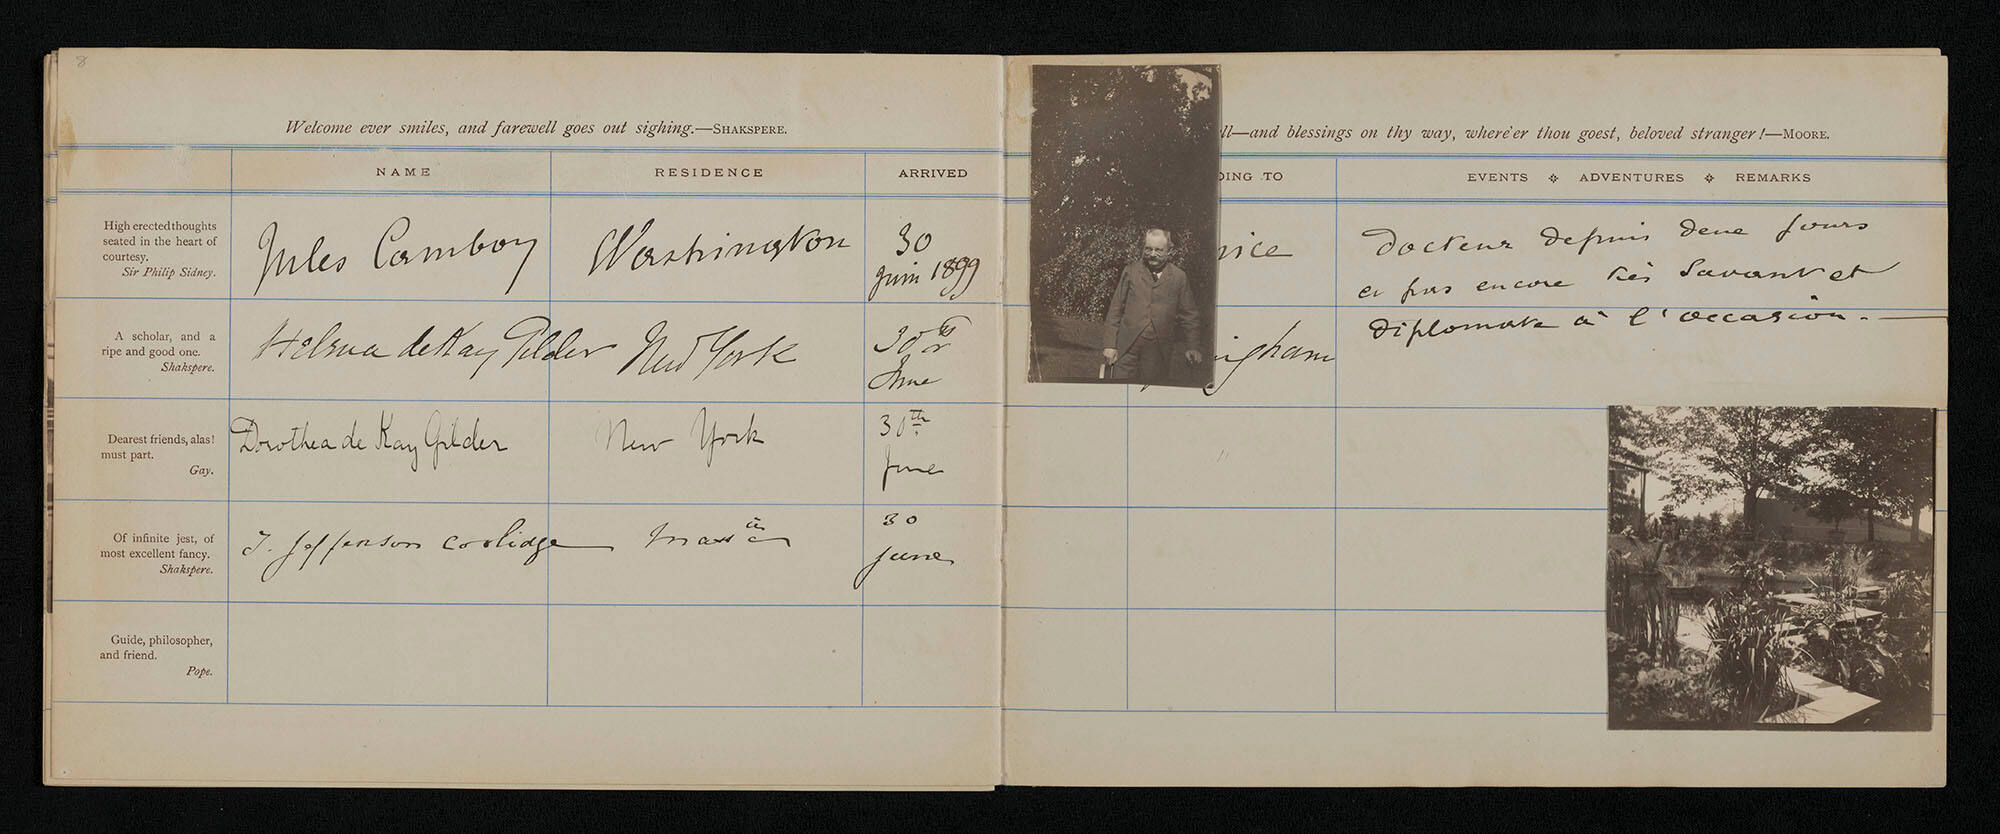 8
Welcome ever smiles, and farewell goes out sighing.—SHAKSPERE.
NAME RESIDENCE ARRIVED
High erected thoughts
seated in the heart of
courtesy.
Sir Philip Sidney.
Jules Cambon Washington 30
juin 1899
A scholar, and a
ripe and good one.
Shakspere.
Helena deKay Gilder New York 30
June
Dearest friends, alas!
must part.
Gay.
Dorothea de Kay Gilder New York 30th
June
Of infinite jest, of
most excellent fancy.
Shakspere.
T. Jefferson Coolidge Mass 30
June
Guide, philosopher,
and friend.
Pope.
ll—and blessings on thy way, where'er thou goest, beloved stranger!—MOORE.
DING TO EVENTS ADVENTURES REMARKS
Docteur depuis deux jours
et pas encore très Savant et
Diplomate à l'occasion.
ingham
"